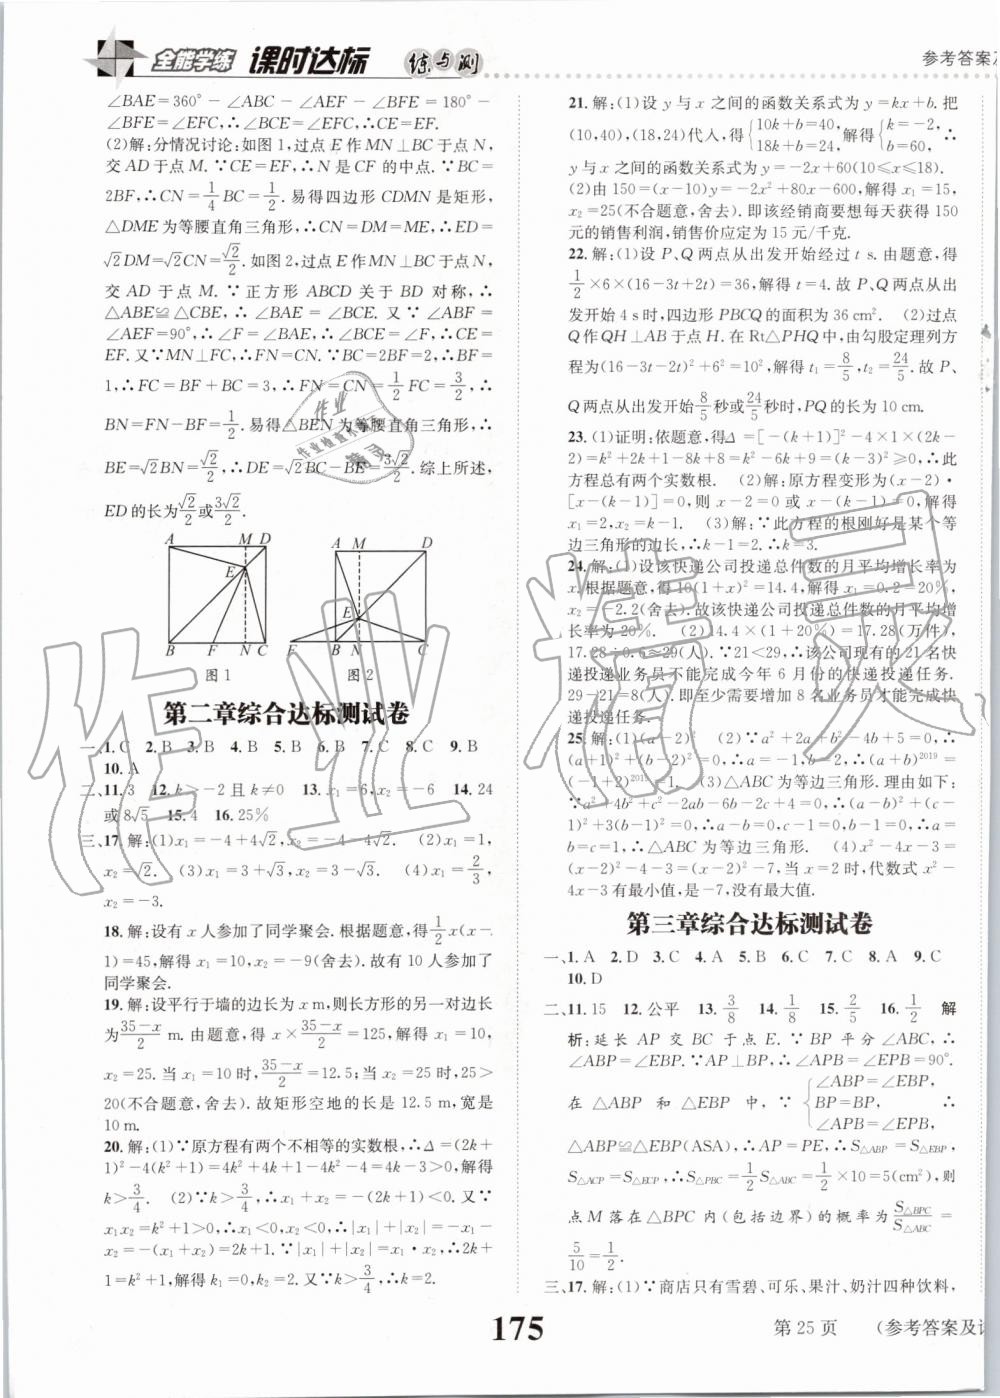 全能学练 课时达标 练与测
参考答案及
∠BAE=360°-∠ABC-∠AEF-∠BFE=180°-
∠BFE=∠EFC,∴∠BCE=∠EFC=∠CEF.
(2)解:分情况讨论:如图1,过点E作MN⊥BC于点N,
交AD于点M.∵CE=EF,∴N是CF的中点.∵BC=
2BF,∴CN=1/4BC=1/2.易得四边形CDMN是矩形,
△DME为等腰直角三角形,∴CN=DM=ME,∴ED=
√2DM=√2CN=√2/2.如图2,过点E作MN⊥BC于点N,
交AD于点M.∵正方形ABCD关于BD对称,∴
△ABE≌△CBE,∴∠BAE=∠BCE.又∵∠ABF=
∠AEF=90°,∴∠F=∠BAE,∴∠BCE=∠F,∴CE=
EF.又∵MN⊥FC,∴FN=CN.又∵BC=2BF,∴BF=
1,∴FC=BF+BC=3,∴FN=CN=1/2FC=3/2,∴
BN=FN-BF=1/2.易得△BEN为等腰直角三角形,∴
BE=√2BN=√2/2,∴DE=√2BC-BE=3√2/2.综上所述,
ED的长为√2/2或3√2/2.
A M D
E
B F N C
图1
A M D
E
F B N C
图2
第二章综合达标测试卷
一、1.C 2.B 3.B 4.B 5.B 6.B 7.C 8.C 9.B
10.A
二、11.3 12.k>-2且k≠0 13.x₁=6,x₂=-6 14.24
或8√5 15.4 16.25%
三、17.解:(1)x₁=-4+4√2,x₂=-4-4√2. (2)x₁=1,
x₂=√2. (3)x₁=3+√3,x₂=3-√3. (4)x₁=2/3,
x₂=-3.
18.解:设有x人参加了同学聚会.根据题意,得1/2x(x-
1)=45,解得x₁=10,x₂=-9(舍去).故有10人参加了
同学聚会.
19.解:设平行于墙的边长为x m,则长方形的另一对边长
为(35-x)/2 m.由题意,得x×(35-x)/2=125,解得x₁=10,
x₂=25.当x₁=10时,(35-x)/2=12.5;当x₂=25时,25>
20(不合题意,舍去).故矩形空地的长是12.5 m,宽是
10 m.
20.解:(1)∵原方程有两个不相等的实数根,∴Δ=(2k+
1)²-4(k²+1)=4k²+4k+1-4k²-4=4k-3>0,解得
k>3/4. (2)∵k>3/4,∴x₁+x₂=-(2k+1)<0.又∵
x₁x₂=k²+1>0,∴x₁<0,x₂<0,∴|x₁|+|x₂|=-x₁-
x₂=-(x₁+x₂)=2k+1.∵|x₁|+|x₂|=x₁x₂,∴2k+
1=k²+1,∴k₁=0,k₂=2.又∵k>3/4,∴k=2.
21.解:(1)设y与x之间的函数关系式为y=kx+b.把
(10,40),(18,24)代入,得{10k+b=40,18k+b=24,解得{k=-2,b=60,∴
y与x之间的函数关系式为y=-2x+60(10≤x≤18).
(2)由150=(x-10)y=-2x²+80x-600,解得x₁=15,
x₂=25(不合题意,舍去).即该经销商要想每天获得150
元的销售利润,销售价应定为15元/千克.
22.解:(1)设P、Q两点从出发开始经过t s.由题意,得
1/2×6×(16-3t+2t)=36,解得t=4.故P、Q两点从出
发开始4 s时,四边形PBCQ的面积为36 cm². (2)过点
Q作QH⊥AB于点H.在Rt△PHQ中,由勾股定理列方
程(16-3t-2t)²+6²=10²,解得t₁=8/5,t₂=24/5.故P、
Q两点从出发开始8/5秒或24/5秒时,PQ的长为10 cm.
23.(1)证明:依题意,得Δ=[-(k+1)]²-4×1×(2k-
2)=k²+2k+1-8k+8=k²-6k+9=(k-3)²≥0,∴此方
程总有两个实数根. (2)解:原方程变形为(x-2)·
[x-(k-1)]=0,则x-2=0或x-(k-1)=0,解得
x₁=2,x₂=k-1. (3)解:∵此方程的根刚好是某个等
边三角形的边长,∴k-1=2.∴k=3.
24.解:(1)设该快递公司投递总件数的月平均增长率为
x.根据题意,得10(1+x)²=14.4,解得x₁=0.2=20%,
x₂=-2.2(舍去).故该快递公司投递总件数的月平均增
长率为20%. (2)14.4×(1+20%)=17.28(万件),
17.28÷0.6≈29(人).∵21<29,∴该公司现有的21名快
递投递业务员不能完成今年6月份的快递投递任务.
29-21=8(人).即至少需要增加8名业务员才能完成快
递投递任务.
25.解:(1)(a-2)² (2)∵a²+2a+b²-4b+5=0,∴
(a+1)²+(b-2)²=0,∴a=-1,b=2,∴(a+b)²⁰¹⁹=
(-1+2)²⁰¹⁹=1. (3)△ABC为等边三角形.理由如下:
∵a²+4b²+c²-2ab-6b-2c+4=0,∴(a-b)²+(c-
1)²+3(b-1)²=0,∴a-b=0,c-1=0,b-1=0,∴a=
b=c=1,∴△ABC为等边三角形. (4)x²-4x-3=
(x-2)²-4-3=(x-2)²-7,当x=2时,代数式x²-
4x-3有最小值,是-7,没有最大值.
第三章综合达标测试卷
一、1.A 2.D 3.C 4.A 5.B 6.D 7.C 8.A 9.C
10.D
二、11.15 12.公平 13.3/8 14.1/8 15.2/5 16.1/2 解
析:延长AP交BC于点E.∵BP平分∠ABC,∴
∠ABP=∠EBP.∵AP⊥BP,∴∠APB=∠EPB=90°.
在△ABP和△EBP中,∵{∠ABP=∠EBP,BP=BP,∠APB=∠EPB,∴
△ABP≌△EBP(ASA),∴AP=PE,∴S△ABP=S△EBP,
S△ACP=S△ECP,∴S△PBC=1/2S△ABC=1/2×10=5(cm²),则
点M落在△BPC内(包括边界)的概率为S△BPC/S△ABC=
5/10=1/2.
三、17.解:(1)∵商店只有雪碧、可乐、果汁、奶汁四种饮料,
175
第25页 (参考答案及详